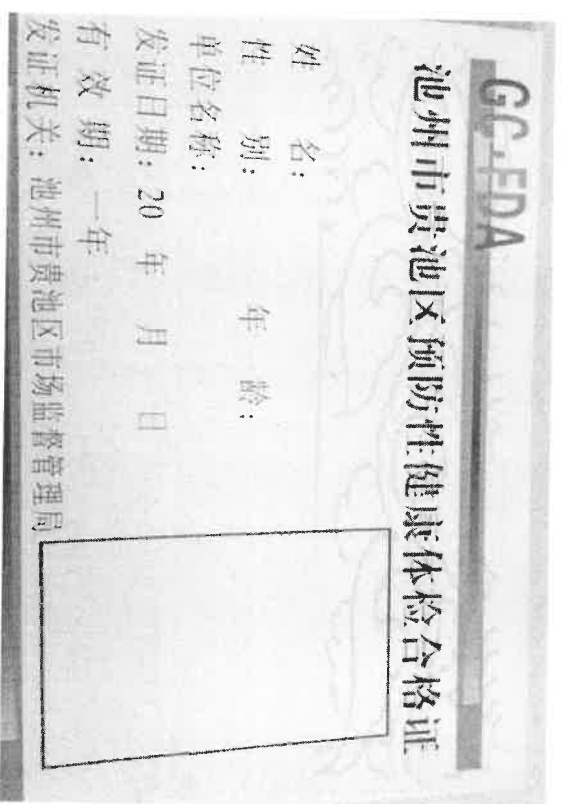 GC·FDA
池州市贵池区预防性健康体检合格证
姓 名：
性 别： 年 龄：
单位名称：
发证日期：20 年 月 日
有 效 期：一年
发证机关：池州市贵池区市场监督管理局